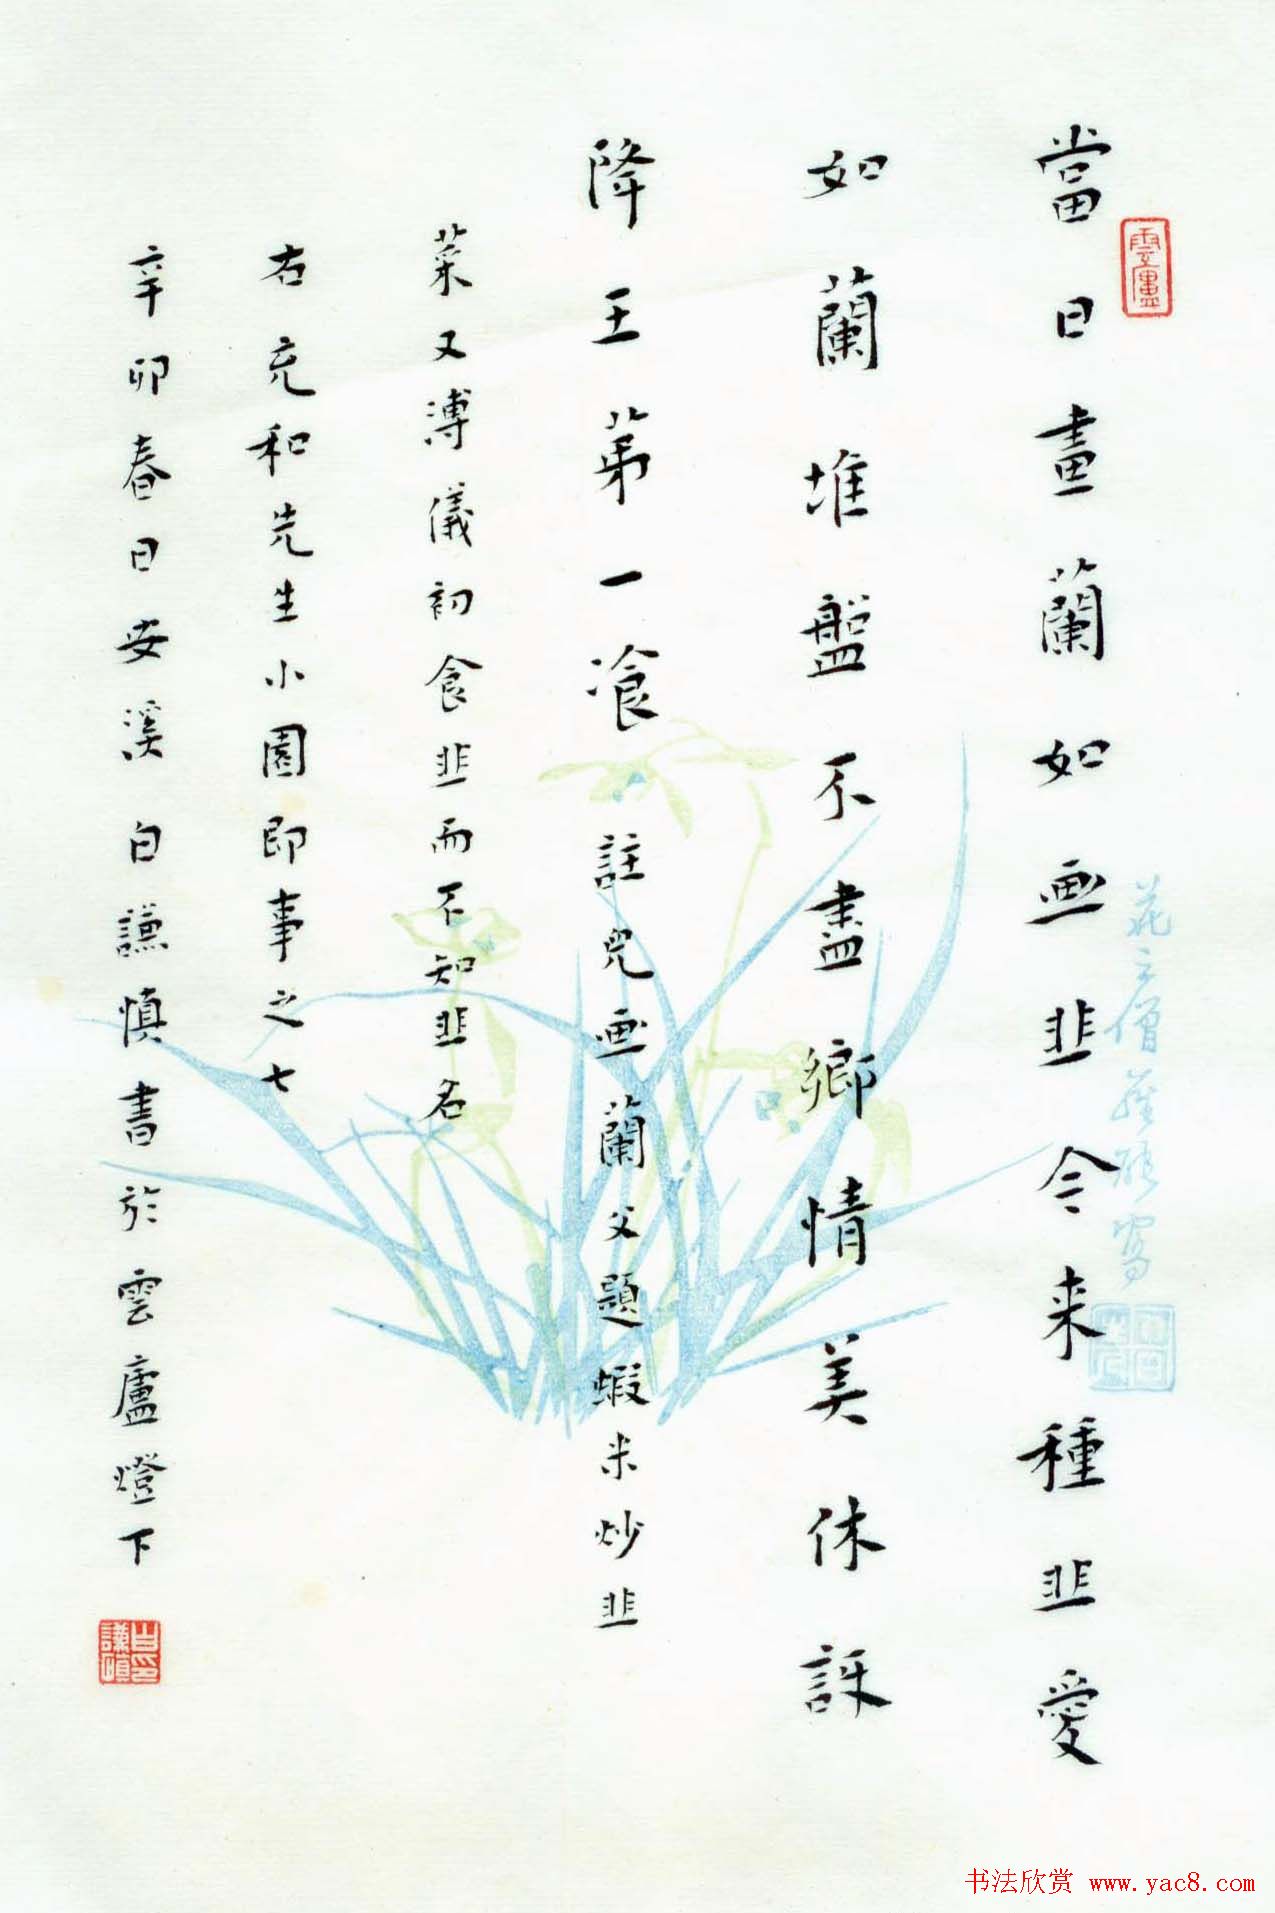 當日畫蘭如画韭今来種韭愛
如蘭堆盤不盡鄉情美休訝
降王第一飡註兒画蘭父題蝦米炒韭
菜又溥儀初食韭而不知韭名
右充和先生小園即事之七
辛卯春日安溪白謙慎書於雲廬燈下
雲廬
白謙慎印
书法欣赏 www.yac8.com